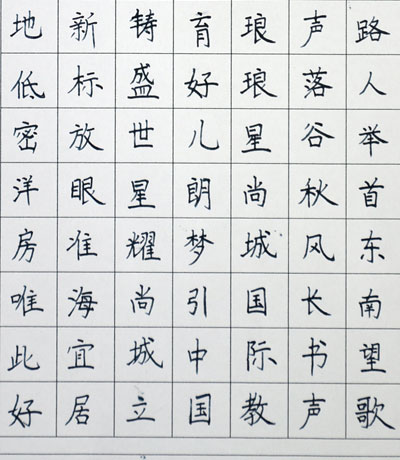 路人举首东南望歌
声落谷秋风长书声
琅琅星尚城国际教
育好儿朗梦引中国
铸盛世星耀尚城立
新标放眼准海宜居
地低密洋房唯此好